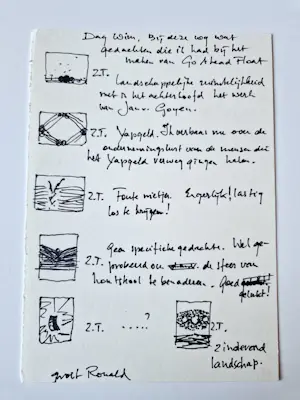 Dag Wim. Bij deze nog wat
gedachten die ik had bij het
maken van Go Ahead Float
Z.T. Landschappelijke ruimtelijkheid
met in het achterhoofd het werk
van Jan v. Goyen.
Z.T. Yapgeld. Ik verbaas me over de
ondernemingslust van de mensen die
het Yapgeld ver weg gingen halen.
Z.T. Foute nietjes. Ergerlijk! Lastig
los te krijgen!
Z.T. Geen specifieke gedachte. Wel ge-
probeerd om de sfeer van
houtskool te benaderen. Goed
gelukt!
Z.T. .....?
Z.T.
Zinderend
landschap.
groet Ronald